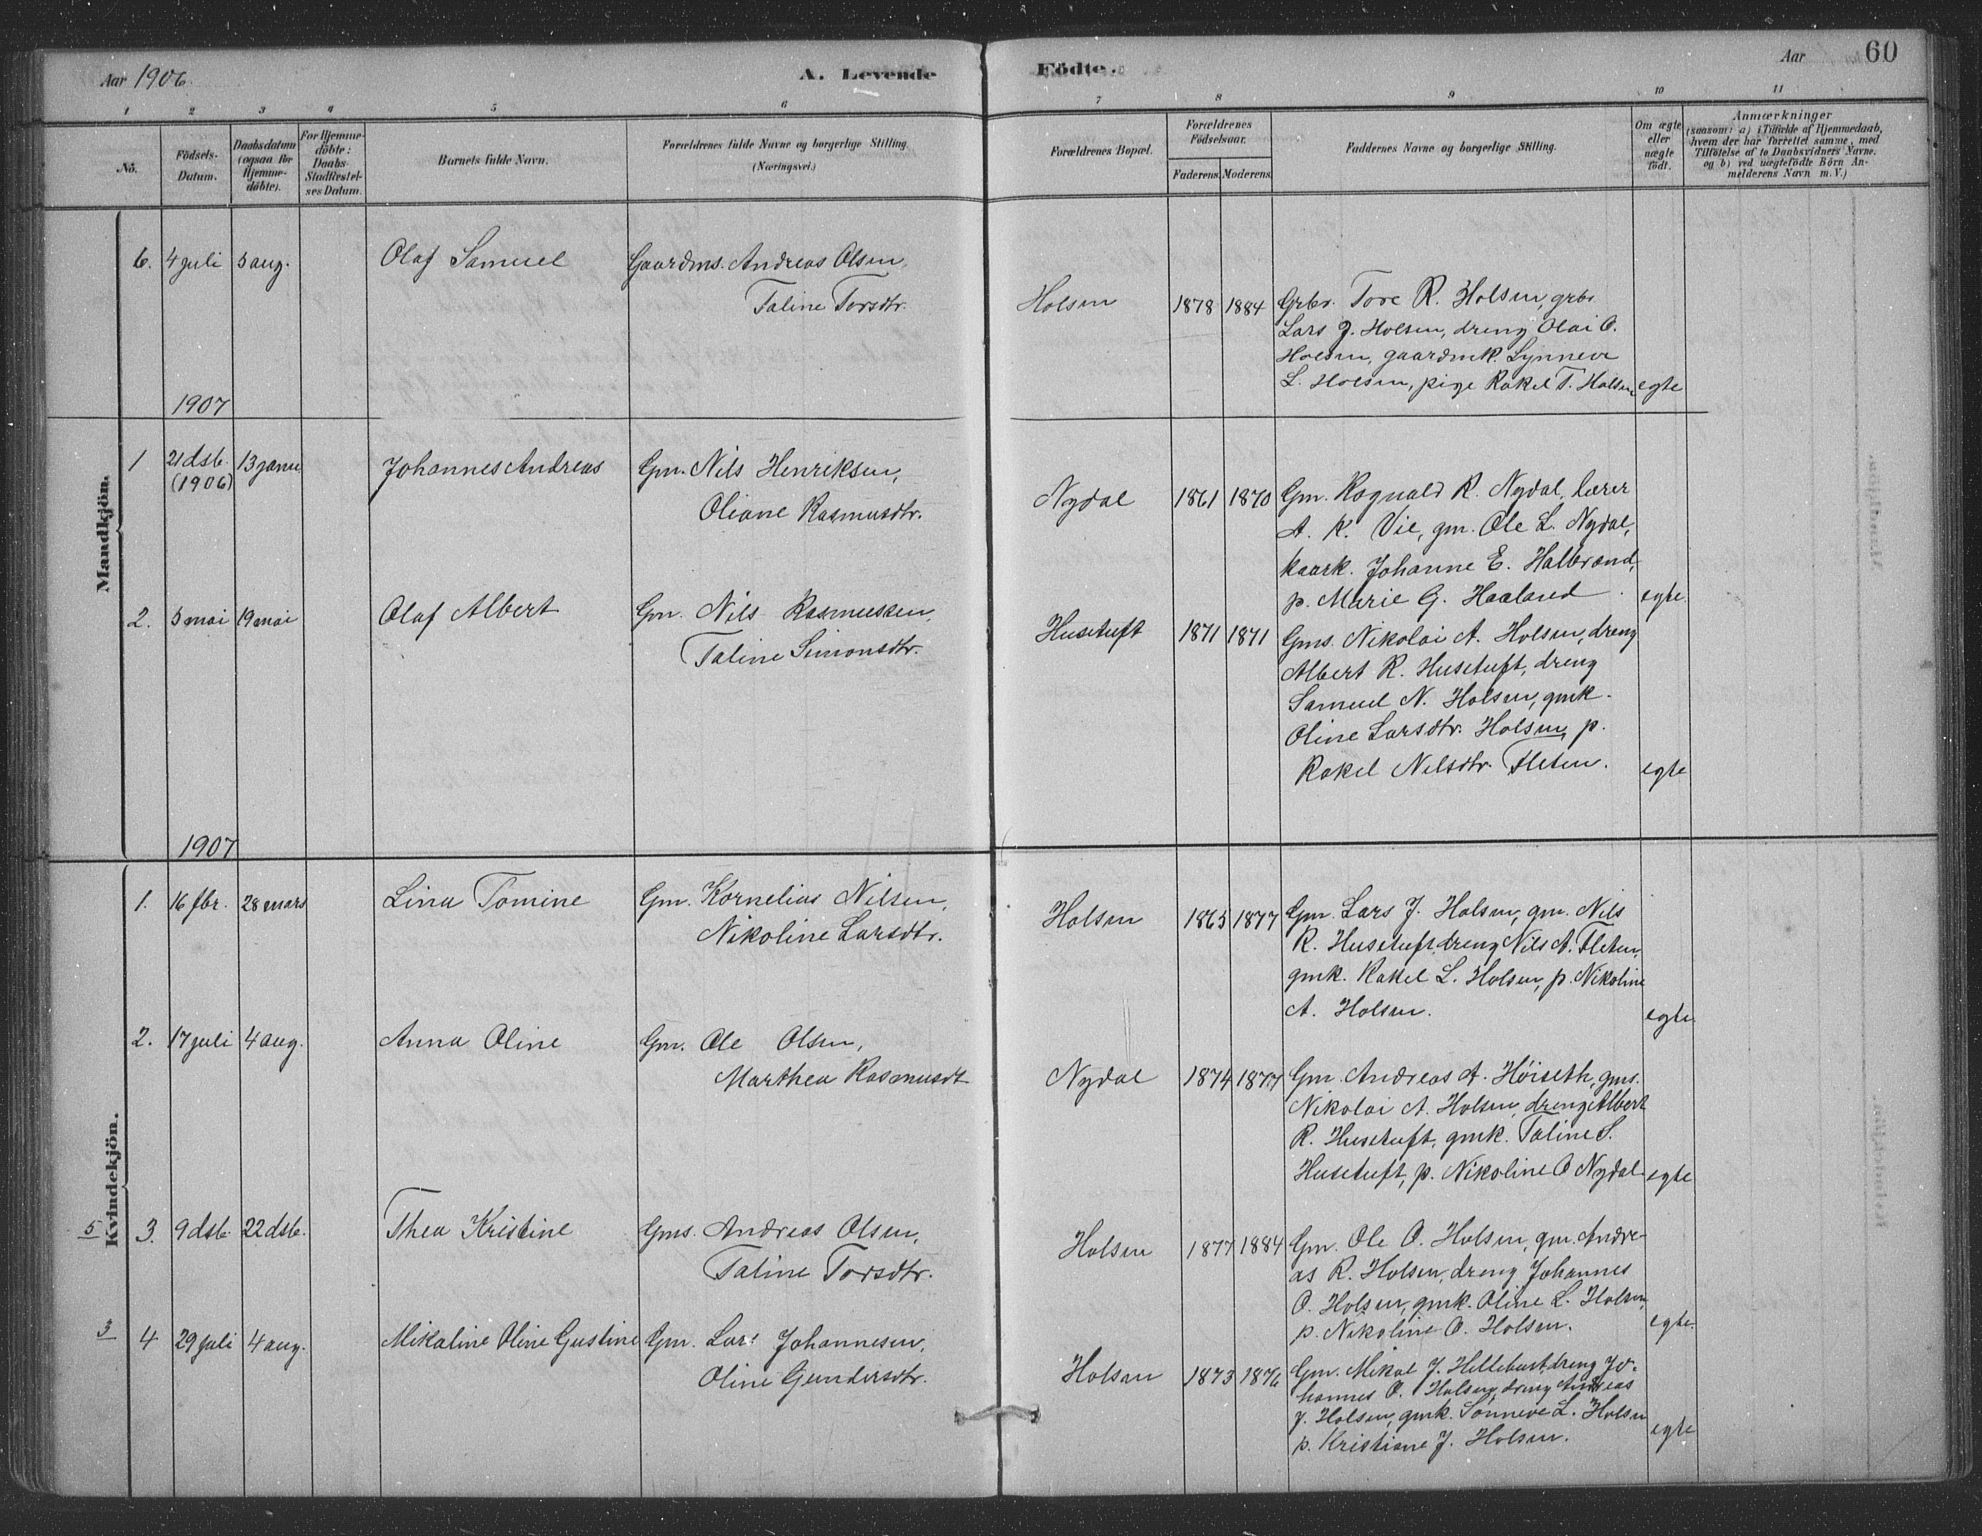 Aar 1906.
A. Levende Födte.
Aar
60
1 2 3 4 5 6 7 8 9 10 11
No.
Födsels-Datum.
Daabsdatum (ogsaa for Hjemme-döbte).
For Hjemme-döbte: Daabs-Stadfæstel-ses Datum.
Barnets fulde Navn.
Forældrenes fulde Navne og borgerlige Stilling. (Næringsvei.)
Forældrenes Bopæl.
Forældrenes Födselsaar.
Faderens. Moderens.
Faddernes Navne og borgerlige Stilling.
Om ægte eller uægte födt.
Anmærkninger
(saasom: a) i Tilfælde af Hjemmedaab, hvem der har forrettet samme, med Tilföielse af to Daabsvidners Navne, og b) ved uægtefödte Börn An-melderens Navn m. V.)
Mandkjön.
6. 4 juli 5 aug. Olaf Samuel Gaardms. Andreas Olsen,
Taline Torsdtr.
Holsen 1878 1884 Grbr. Tore R. Holsen, grbr.
Lars J. Holsen, dreng Olai O.
Holsen, gaardmk. Synneve
L. Holsen, pige Rakel T. Holsen egte
1907
1 21 dsb. (1906) 13 janu Johannes Andreas Gm. Nils Henriksen,
Oliane Rasmusdtr.
Nydal 1861 1870 Gm. Ragnald R. Nydal, lærer
A. K. Vie, gm. Ole L. Nydal,
kaark. Johanne E. Halbrand,
p. Marie G. Haaland. egte.
2. 5 mai 19 mai Olaf Albert Gm. Nils Rasmussen,
Taline Simonsdtr.
Husetuft 1871 1871 Gms. Nikolai A. Holsen, dreng
Albert R. Husetuft, dreng
Samuel N. Holsen, gmk.
Oline Larsdtr. Holsen, p.
Rakel Nilsdtr. Fleten. egte
1907
Kvindekjön.
1. 16 fbr. 28 mars Lina Tomine Gm. Kornelius Nilsen,
Nikoline Larsdtr.
Holsen 1865 1877 Gm. Lars J. Holsen, gm. Nils
R. Husetuft, dreng Nils A. Fleten,
gmk. Rakel L. Holsen, p. Nikoline
A. Holsen. egte
2. 17 juli 4 aug. Anna Oline Gm. Ole Olsen,
Marthea Rasmusdt
Nydal 1874 1877 Gm. Andreas A. Høiseth, gms.
Nikolai A. Holsen, dreng Albert
R. Husetuft, gmk. Taline S.
Husetuft, p. Nikoline O Nydal egte
5 3. 9 dsb. 22 dsb. Thea Kristine Gms. Andreas Olsen,
Taline Torsdtr.
Holsen 1877 1884 Gm. Ole O. Holsen, gm. Andre-
as R. Holsen, dreng Johannes
O. Holsen, gmk. Oline L. Holsen,
p. Nikoline O. Holsen. egte.
3 4 29 juli 4 aug. Mikaline Oline Gustine Gm. Lars Johannesen,
Oline Gundersdtr.
Holsen 1873 1876 Gm. Mikal J. Hillebust, dreng Jo-
hannes O. Holsen, dreng Andreas
J. Holsen, gmk. Sønneve L. Holsen
p. Kristiane J. Holsen. egte